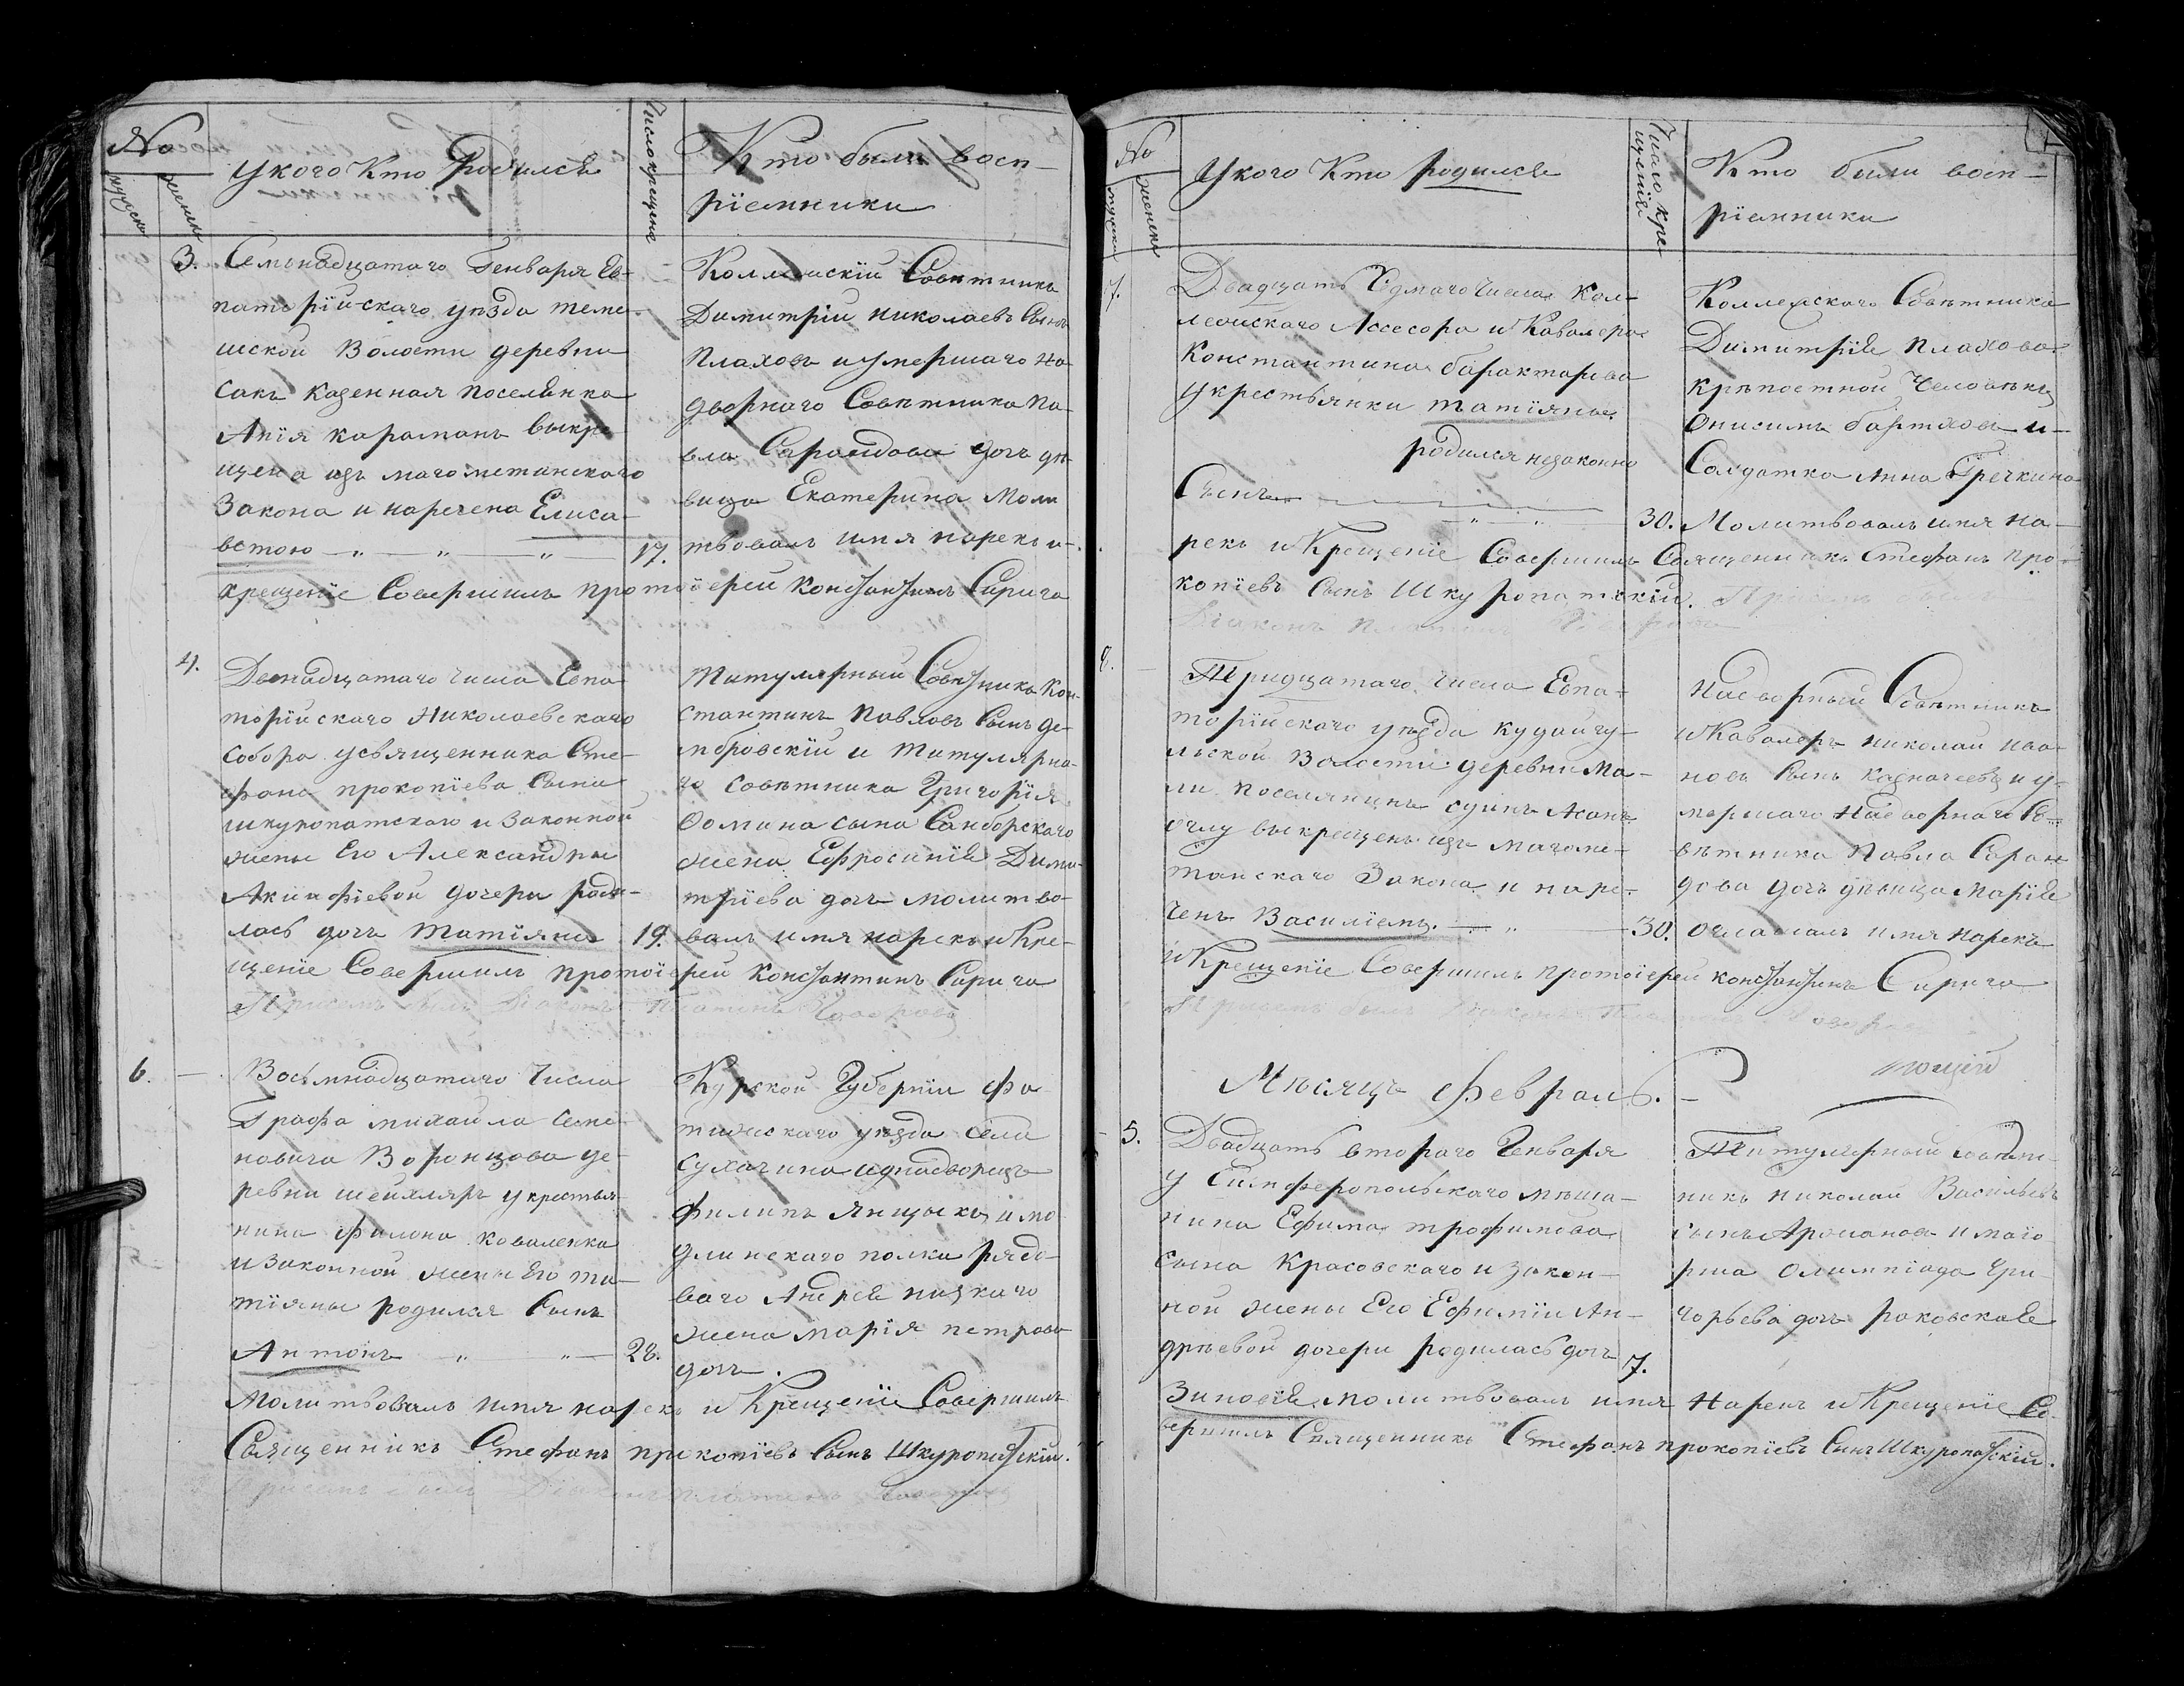 №
мужеска
женска
У кого Кто Родился
Число крещения
Кто были восп-
рiемники
3.
Семьнадцатаго Генваря Ев-
паторiйскаго уѣзда теме-
шской Волости деревни
Сакъ Казенная поселянка
Апiя караманъ выкре-
щена изъ магометанскаго
Закона и наречена Елиса-
ветою
17.
Коллежскiй Совѣтникъ
Димитрiй Николаевъ Сынъ
Плаховъ и умершаго На-
дворнаго Совѣтника Па-
вла Сарандова дочь дѣ-
вица Екатерина Моли
твовалъ имя нарекъ и
крещенiе Совершилъ протоiерей Константинъ Сирига
4.
Девнадцатаго Числа Евпа-
торiйскаго Николаевскаго
Собора у священника Сте-
фана прокопiева Сына
шкуропатскаго и Законной
жены Его Александры
Акинфiевой дочери роди-
лась дочь Татiяна
19.
Титулярный Совѣтникъ Кон-
стантинъ Павловъ Сынъ де-
мбровскiй и Титулярна-
го Совѣтника Григорiя
Фомина сына Санборскаго
жена Ефросинiя Дими-
трiева дочь молитво-
валъ имя нарекъ и Кре-
щенiе Совершилъ протоiерей Константинъ Сирига
6.
Восьмнадцатаго Числа
Графа михаила Семе-
новича Воронцова де-
ревни шейхляръ у крестья-
нина филона коваленка
и Законной жены Его та-
тiяны родился Сынъ
Антонъ
28.
Курской Губернiи фа
тижскаго уѣзда села
Сухачина однодворецъ
филипъ Янцыхъ и мо
длинскаго полка рядо-
ваго Андрея
жена марiя петрова
дочь.
Молитвовалъ имя нарекъ и Крещенiе Совершилъ
Священникъ Стефанъ прокопiевъ Сынъ Шкуропатскiй.
№
мужеска
женска
У кого Кто родился
Число кре
щенiя
Кто были восп-
рiемники
7.
Двадцать Седмаго Числа Кол-
лежскаго Ассесора и Кавалера
Константина барактарева
у крестьянки татiяны
родился незаконно
Сынъ
30.
Коллежскаго Совѣтника
Димитрiя Плахова
крѣпостной Человѣкъ
Онисимъ бартховъ и
Солдатка Анна Гречкина
Молитвовалъ имя на-
рекъ и Крещенiе Совершилъ Священникъ Стефанъ про-
копiевъ Сынъ Шкуропатскiй.
Дiаконъ
8.
Тридцатаго Числа Евпа-
торiйскаго уѣзда кудайгу-
льской Волости деревни Ма-
ли поселянинъ Асанъ
оглу выкрещенъ изъ магоме-
танскаго Закона и наре-
ченъ Василiемъ.
30.
Надворный Совѣтникъ
и Кавалеръ николай ива-
новъ Сынъ Казначеевъ и у-
мершаго Надворнаго Со-
вѣтника Павла Саран
дова дочь дѣвица Марiя
оглашалъ имя нарекъ
и Крещенiе Совершилъ протоiерей Константинъ Сирига
Мѣсяцъ Февраль.
5.
Двадцать втораго Генваря
у Симферопольскаго мѣща-
нина Ефима трофимова
Сына Красовскаго и закон-
ной жены Его Ефимiи Ан-
дрѣевой дочери родилась дочь
7.
Титулярный совѣт-
никъ николай Васильевъ
сынъ Аржановъ и маiо
рша Олимпiада Гри-
горьева дочь раковская
Зиновiя молитвовалъ имя Нарекъ и Крещенiе Со-
вершилъ Священникъ Стефанъ прокопiевъ Сынъ Шкуропатскiй.